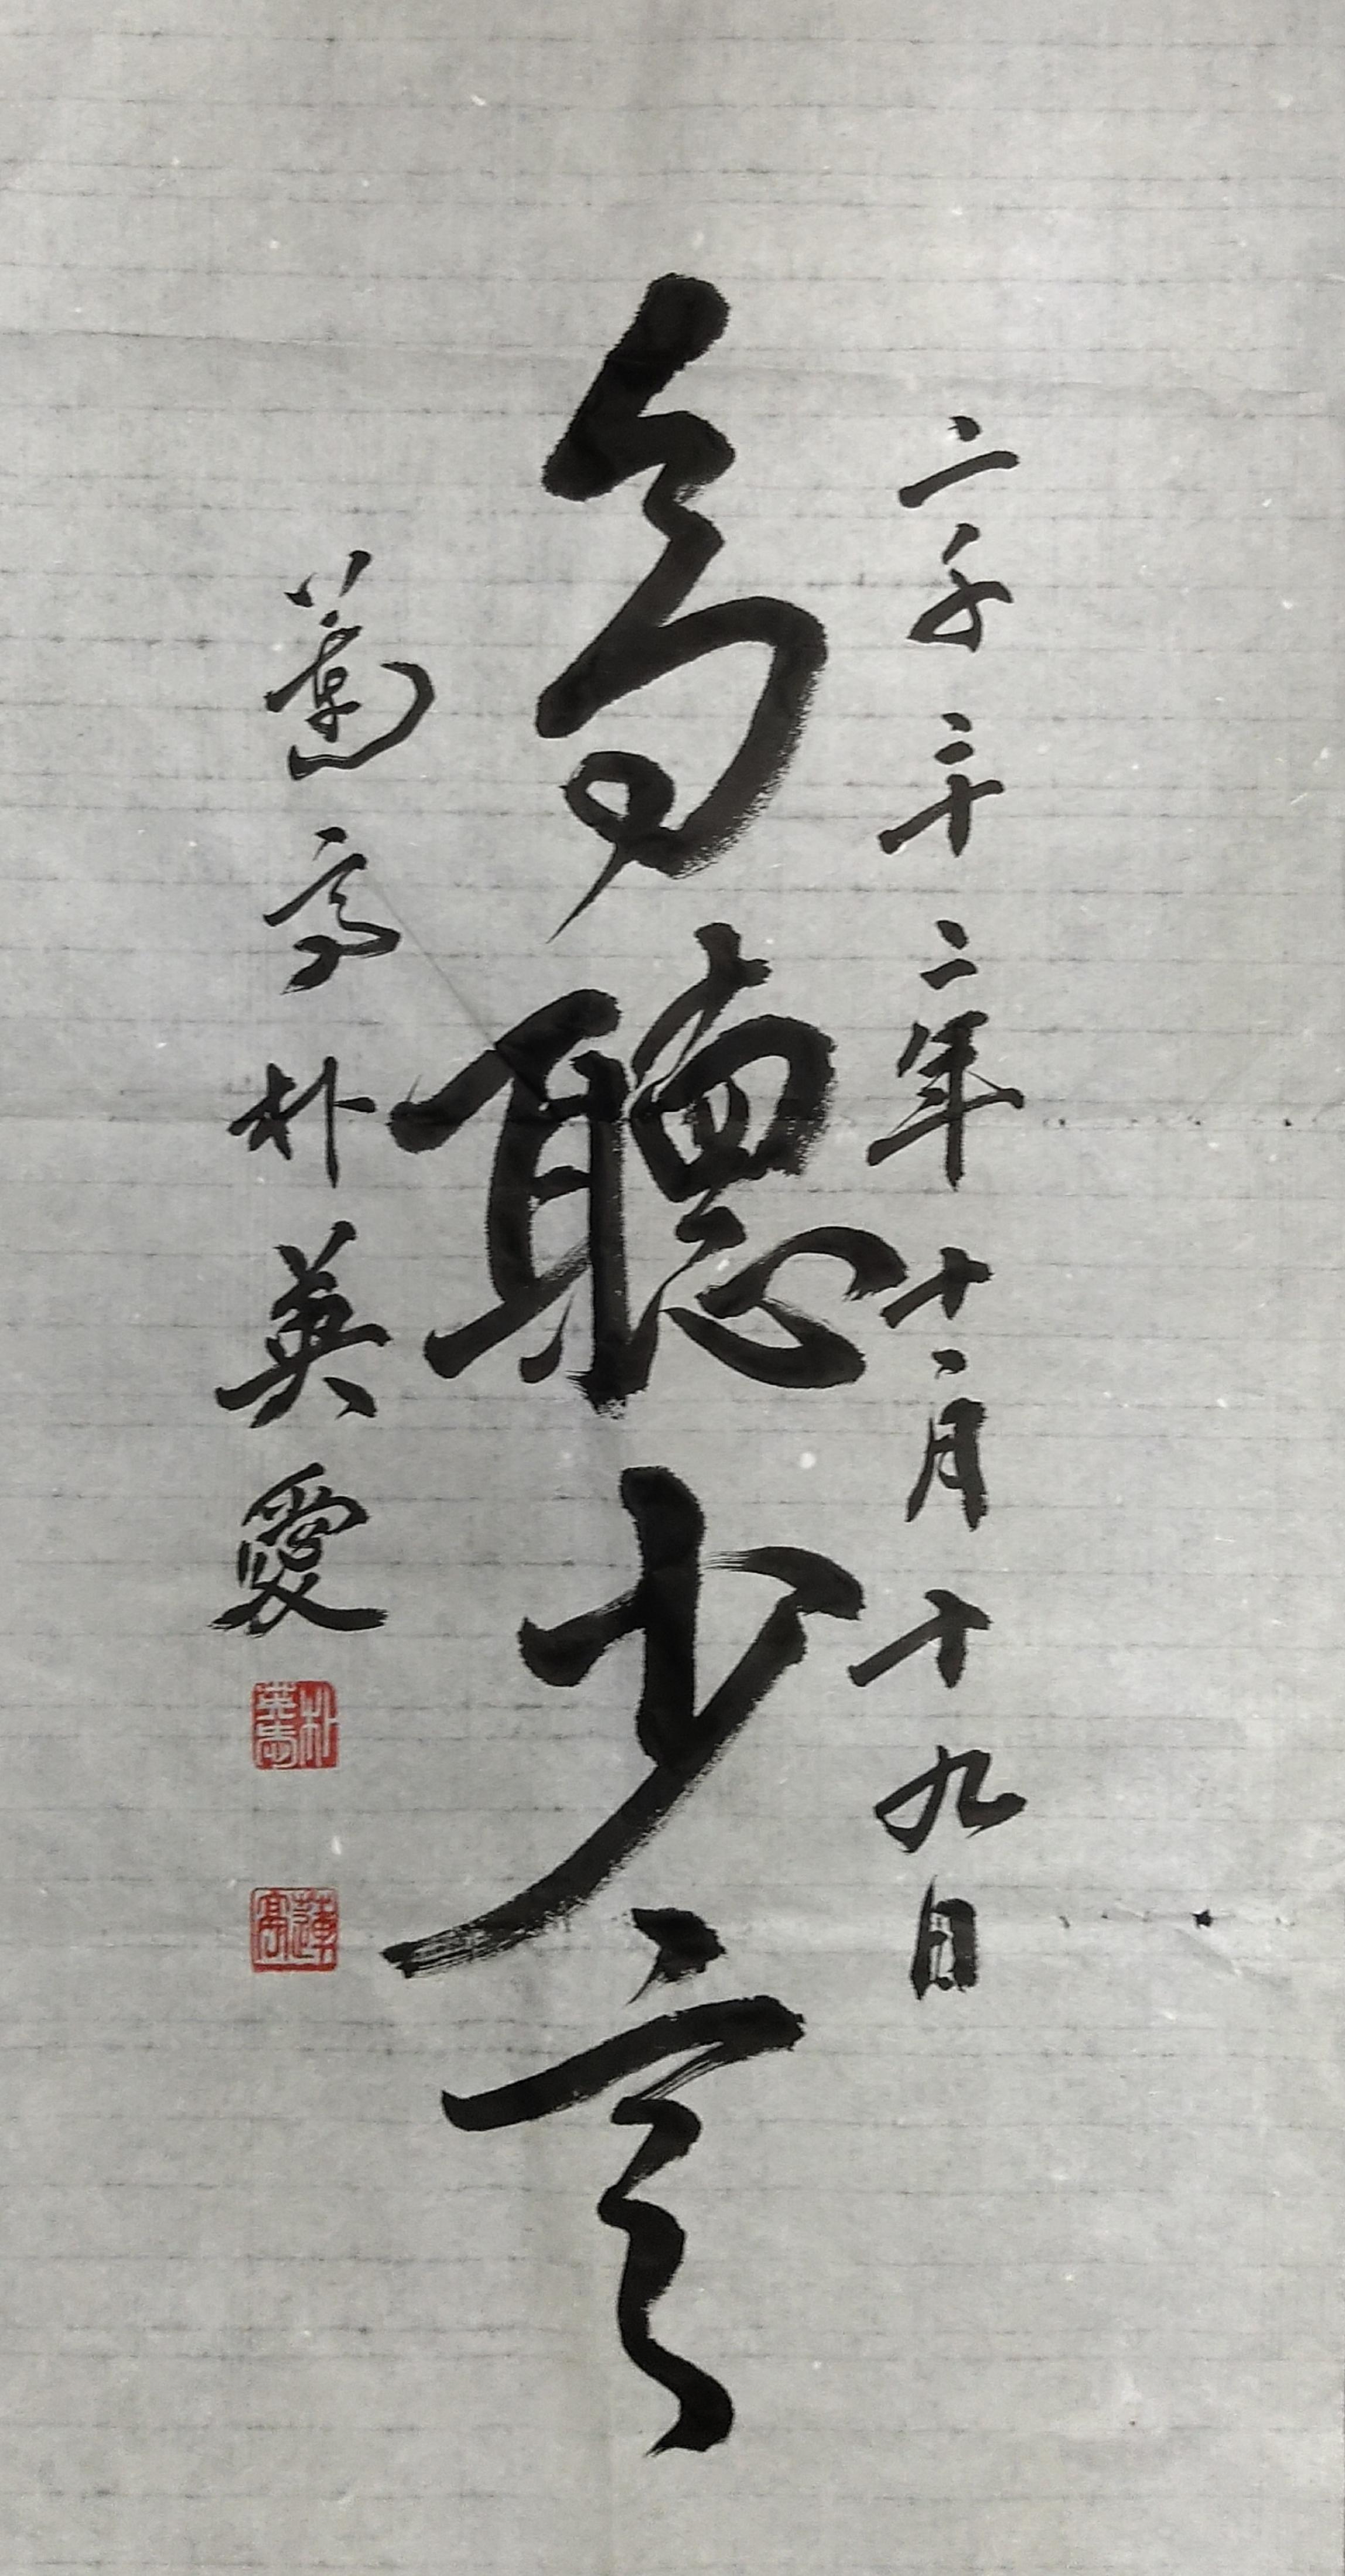 二千二十二年十二月十九日
多聽少言
蓮亭朴英愛
朴英愛
蓮亭